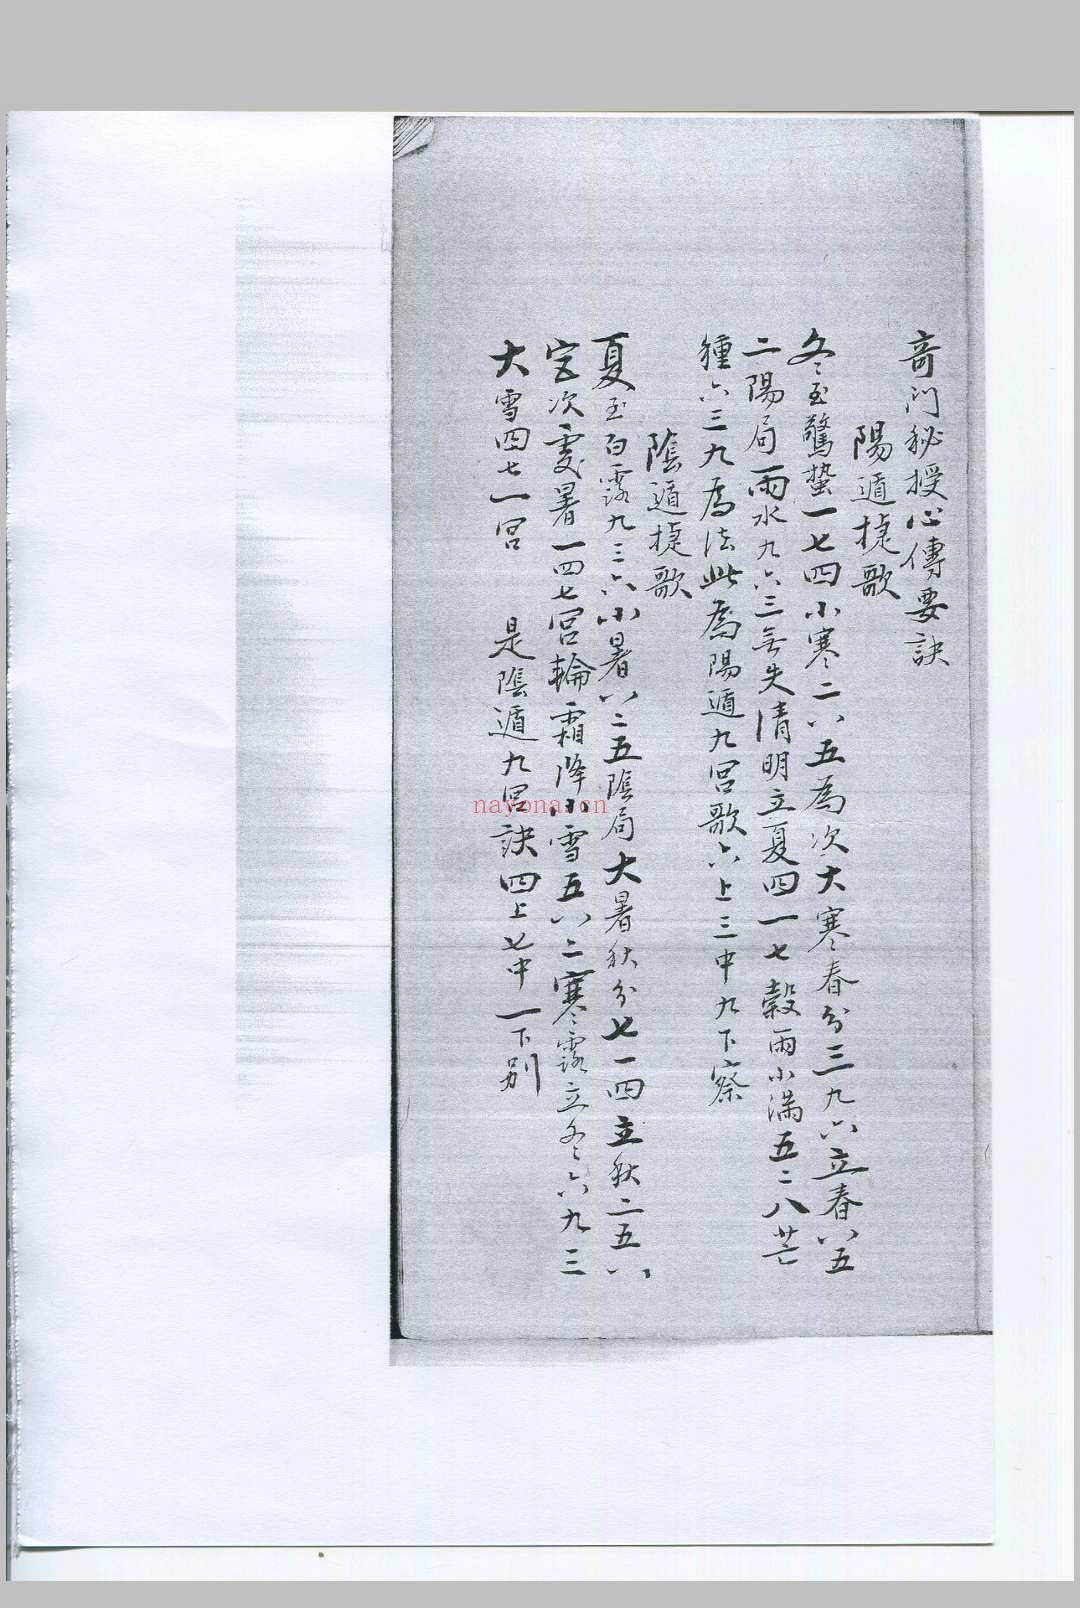 奇門秘授心傳要訣
陽遁捷歌
冬至驚蟄一七四小寒二八五為次大寒春分三九六立春八五
二陽局雨水九六三無失清明立夏四一七穀雨小滿五二八芒
種六三九為法此為陽遁九宮歌六上三中九下察
陰遁捷歌
夏至白露九三六小暑八二五陰局大暑秋分七一四立秋二五八
定次處暑一四七宮輪霜降小雪五八二寒露立冬六九三
大雪四七一宮 是陰遁九宮訣四上七中一下別
nayona.cn